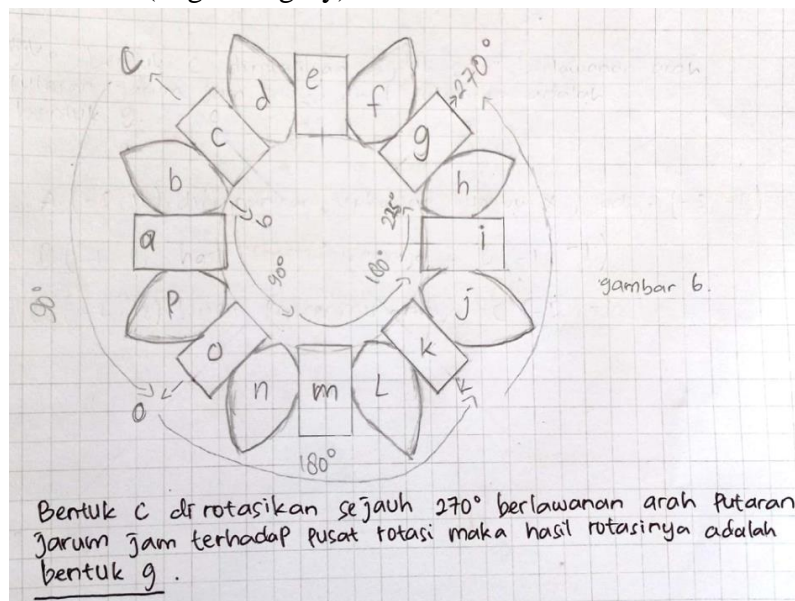 C
270°
d
e
f
c
g
b
h
b
225°
a
i
90°
180°
gambar 6.
90°
p
j
o
k
n
m
L
o
k
180°
Bentuk c dirotasikan sejauh 270° berlawanan arah putaran
jarum jam terhadap pusat rotasi maka hasil rotasinya adalah
bentuk g.